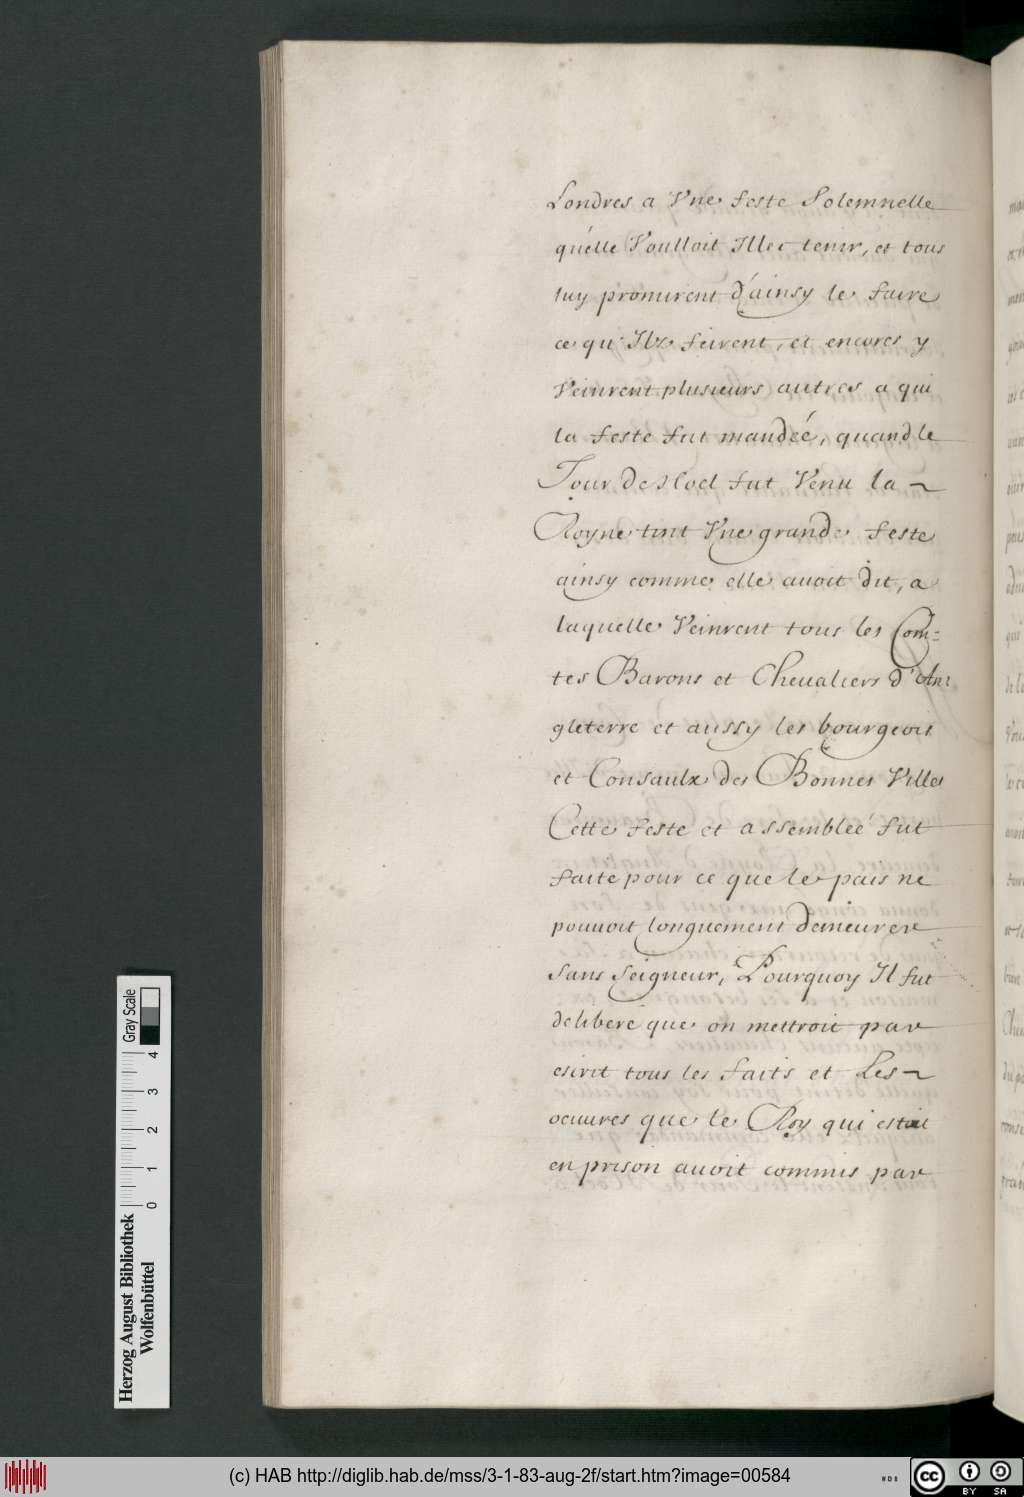 Londres a Vne feste Solemnelle
qu'elle Voulloit Illec tenir, et tous
luy promirent d'ainsy le faire
ce qu'Ilz feirent, et encores y
Veinrent plusieurs autres a qui
la feste fut mandeé, quand le
Jour de Noel fut Venu la
Royne tint Vne grande feste
ainsy comme elle auoit dit, a
laquelle Veinrent tous les Com=
tes Barons et Cheualiers d'An:
gleterre et aussy les bourgeois
et Consaulx des Bonnes Villes
Cette feste et assembleé fut
faite pour ce que le pais ne
pouuoit longuement demeurer
sans seigneur, Pourquoy Il fut
deliberé que on mettroit par
escrit tous les faits et Les
oeuures que le Roy qui estoit
en prison auoit commis par
Herzog August Bibliothek
Wolfenbüttel
0 1 2 3 4
Gray Scale
(c) HAB http://diglib.hab.de/mss/3-1-83-aug-2f/start.htm?image=00584
WDB
cc BY SA